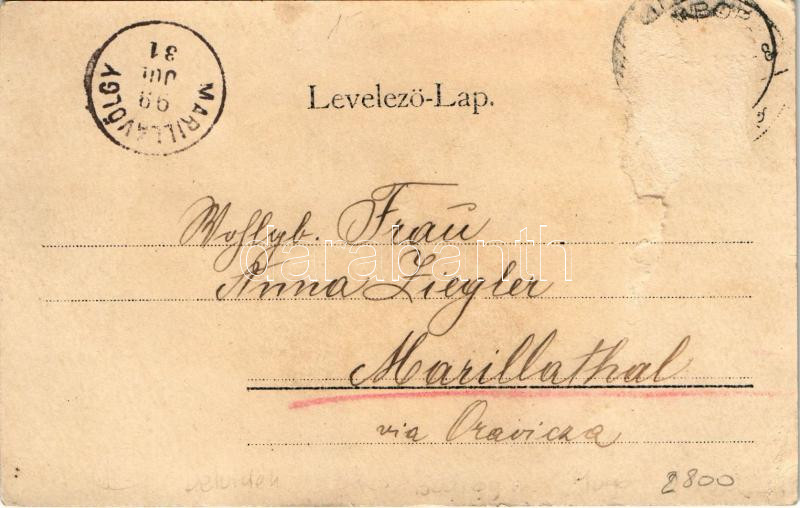 MARILLAVÖLGY
99
JUL
31
Levelező-Lap.
Wohlgb. Frau
Anna Ziegler
Marillathal
via Oravicza
2800
darabanth